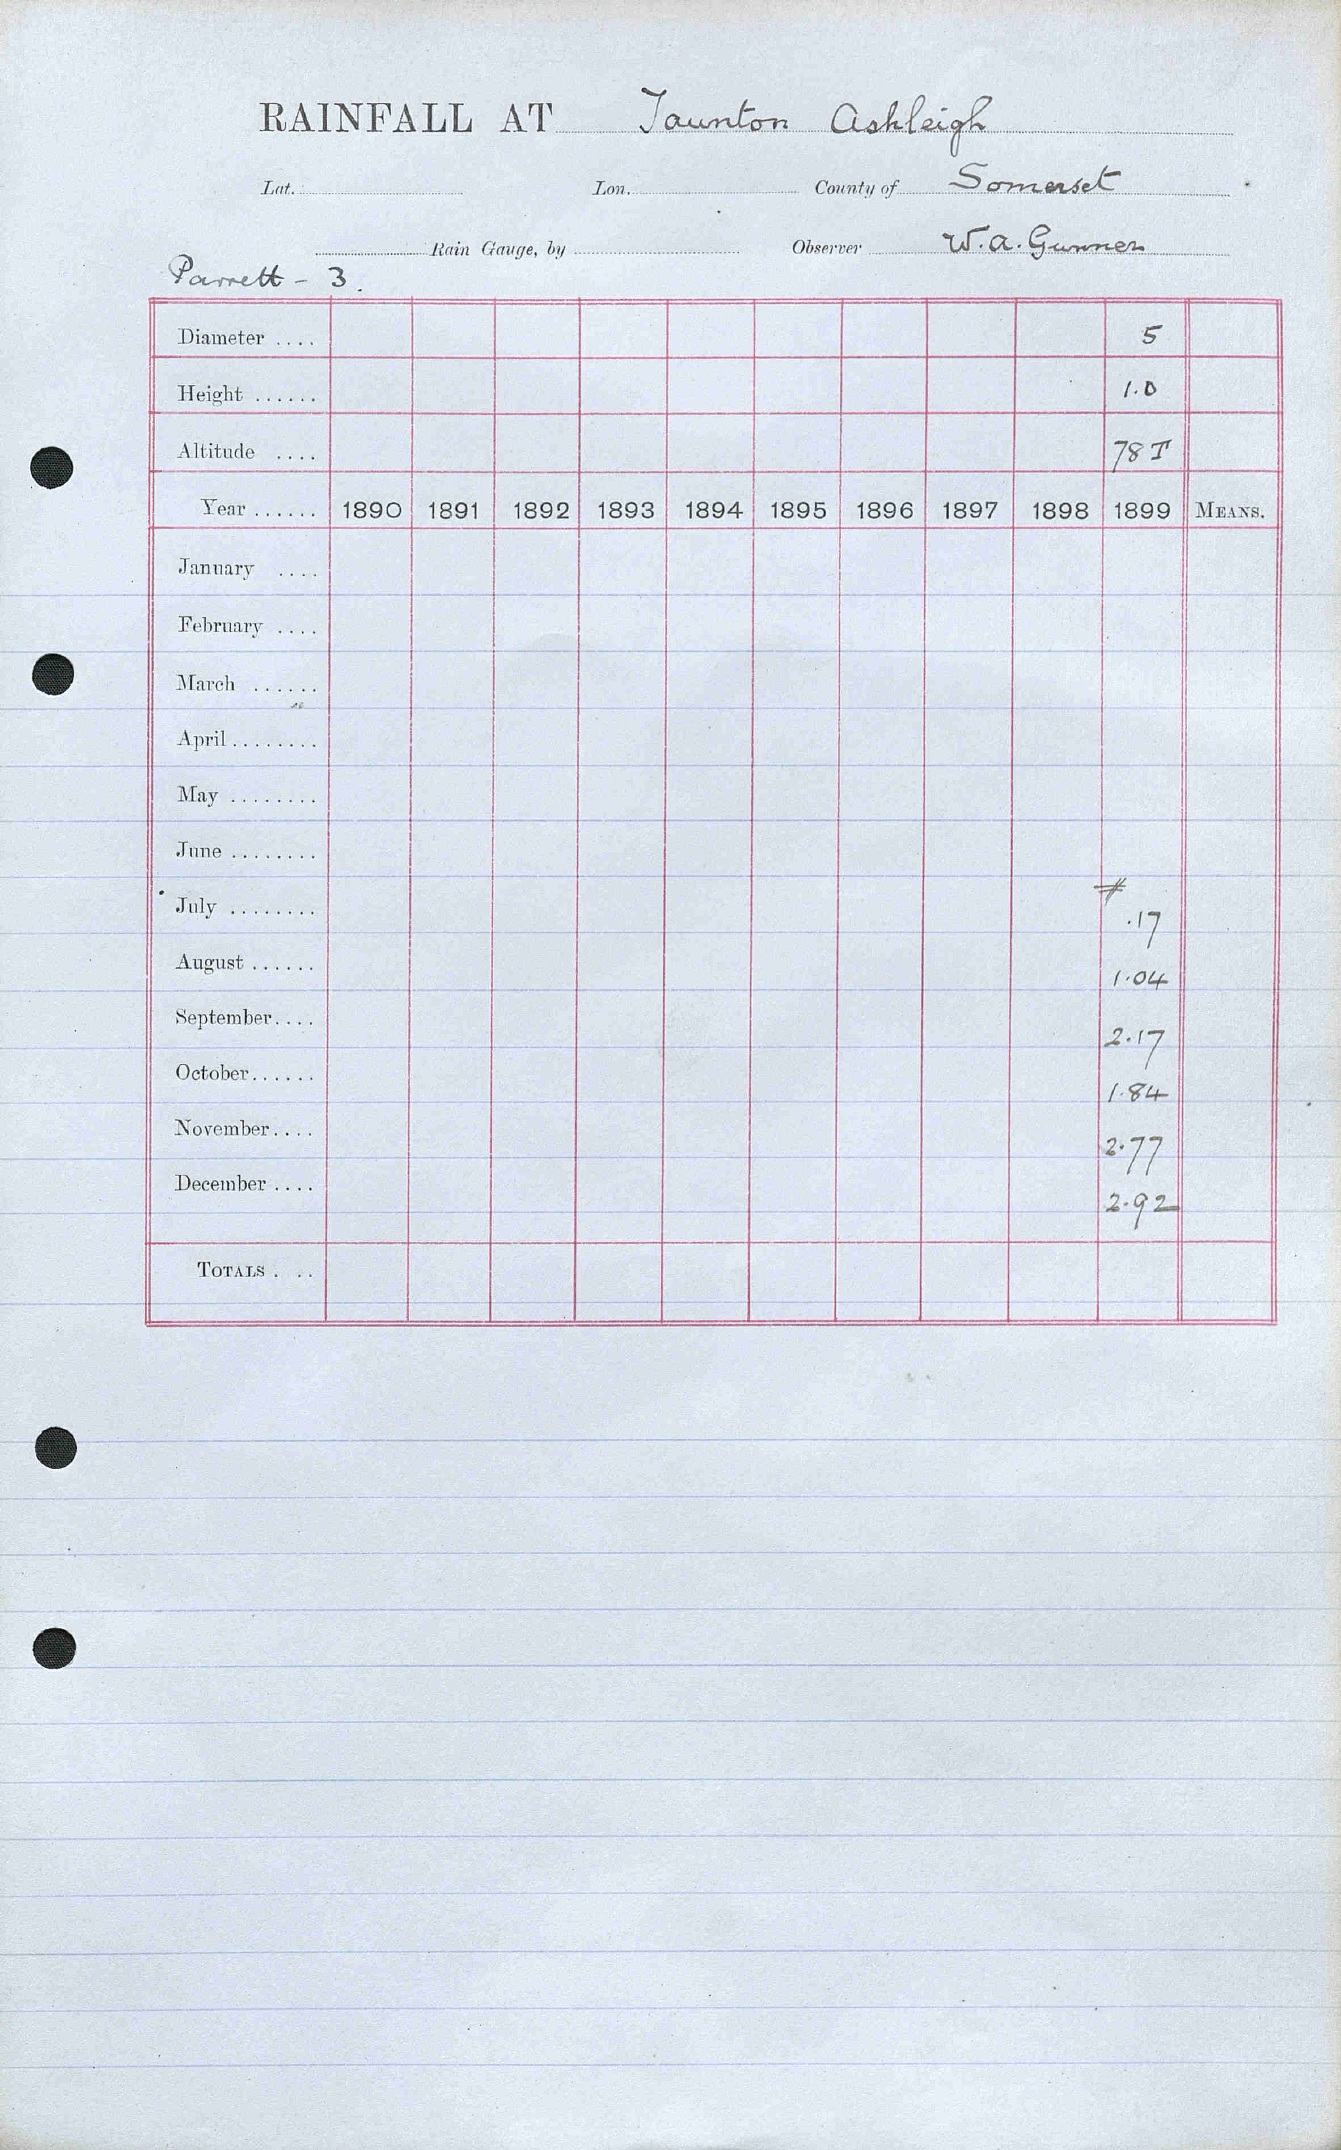 RAINFALL AT Taunton Ashleigh
Lat. Lon. County of Somerset
Rain Gauge, by Observer W. A. Gunner
Parrett - 3.
Diameter .... 5
Height ...... 1.0
Altitude .... 78 T
Year ...... 1890 1891 1892 1893 1894 1895 1896 1897 1898 1899 MEANS.
January ....
February ....
March ......
April ........
May ........
June ........
July ........ # .17
August ...... 1.04
September.... 2.17
October...... 1.84
November.... 2.77
December .... 2.92
TOTALS . ..